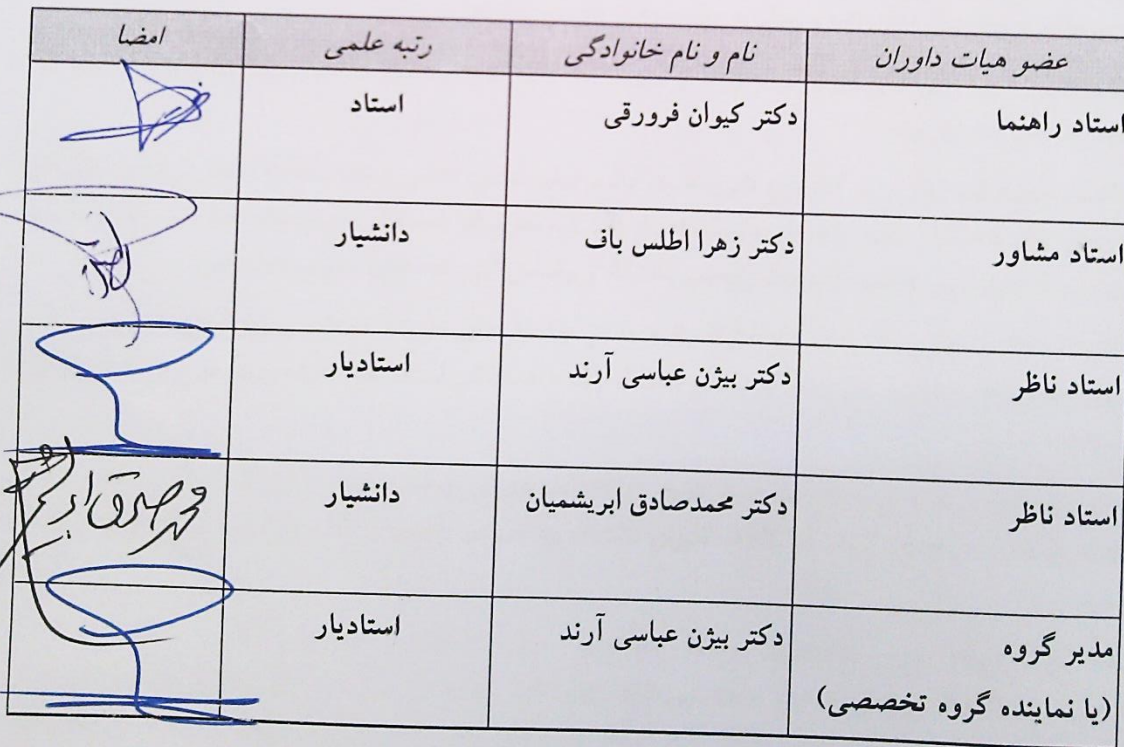 عضو هیات داوران نام و نام خانوادگی رتبه علمی امضا
استاد راهنما دکتر کیوان فرورقی استاد
استاد مشاور دکتر زهرا اطلس باف دانشیار
استاد ناظر دکتر بیژن عباسی آرند استادیار
استاد ناظر دکتر محمدصادق ابریشمیان دانشیار
مدیر گروه دکتر بیژن عباسی آرند استادیار
(یا نماینده گروه تخصصی)